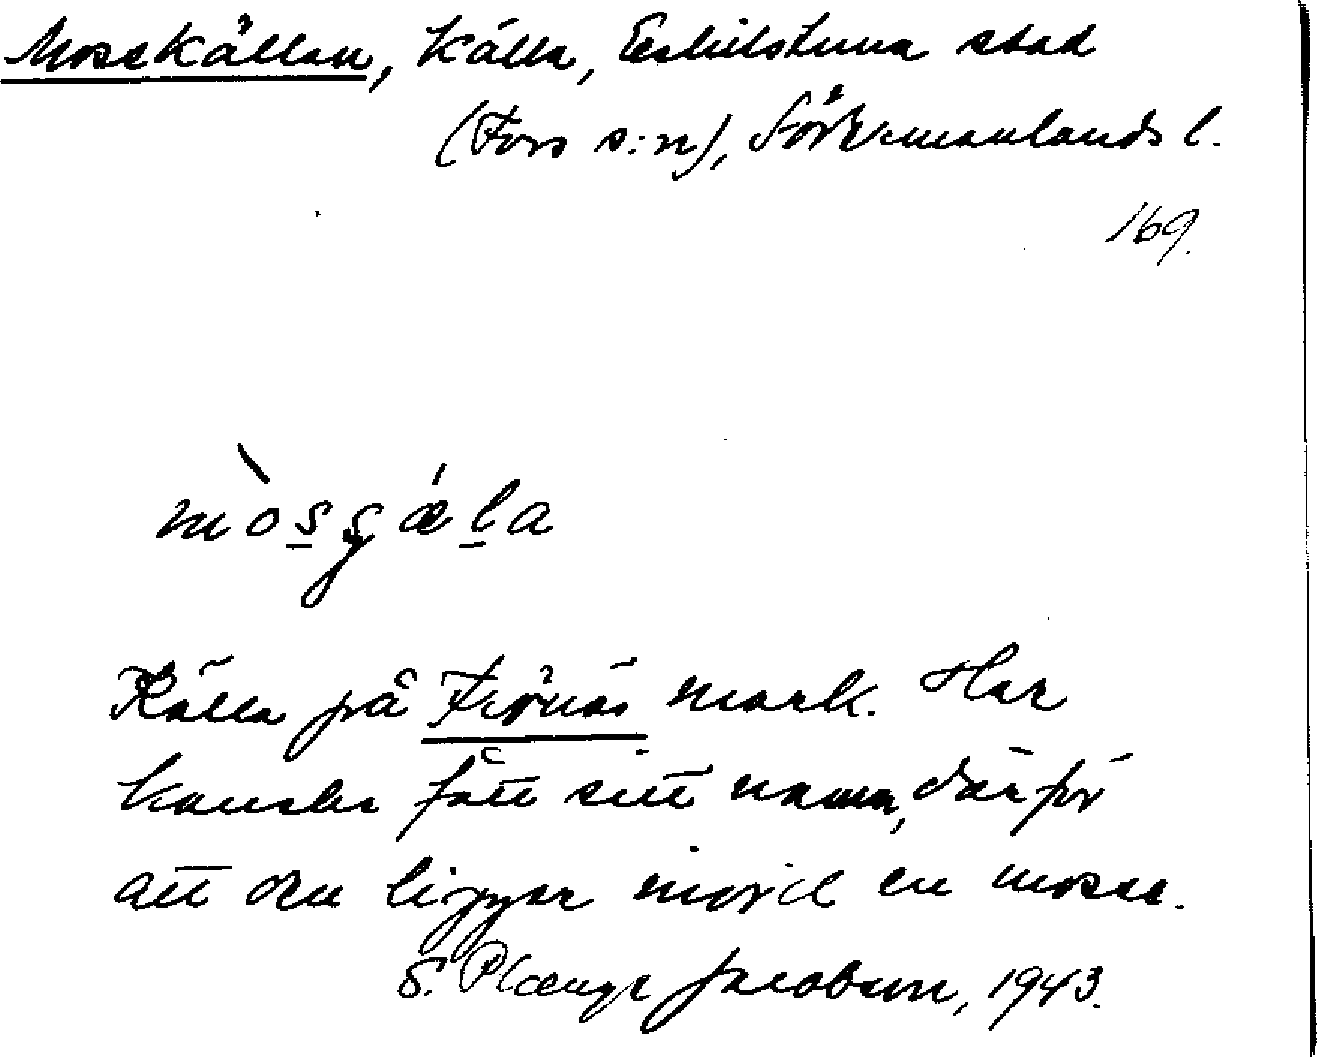 Mossekällan, källa, Eskilstuna stad
(Fors s:n), Södermanlands l.
169.
mòsgǽla
Källa på Frönäs mark. Har
kanske fått sitt namn, därför
att den ligger invid en mosse.
S. Plænge Jacobson, 1943.